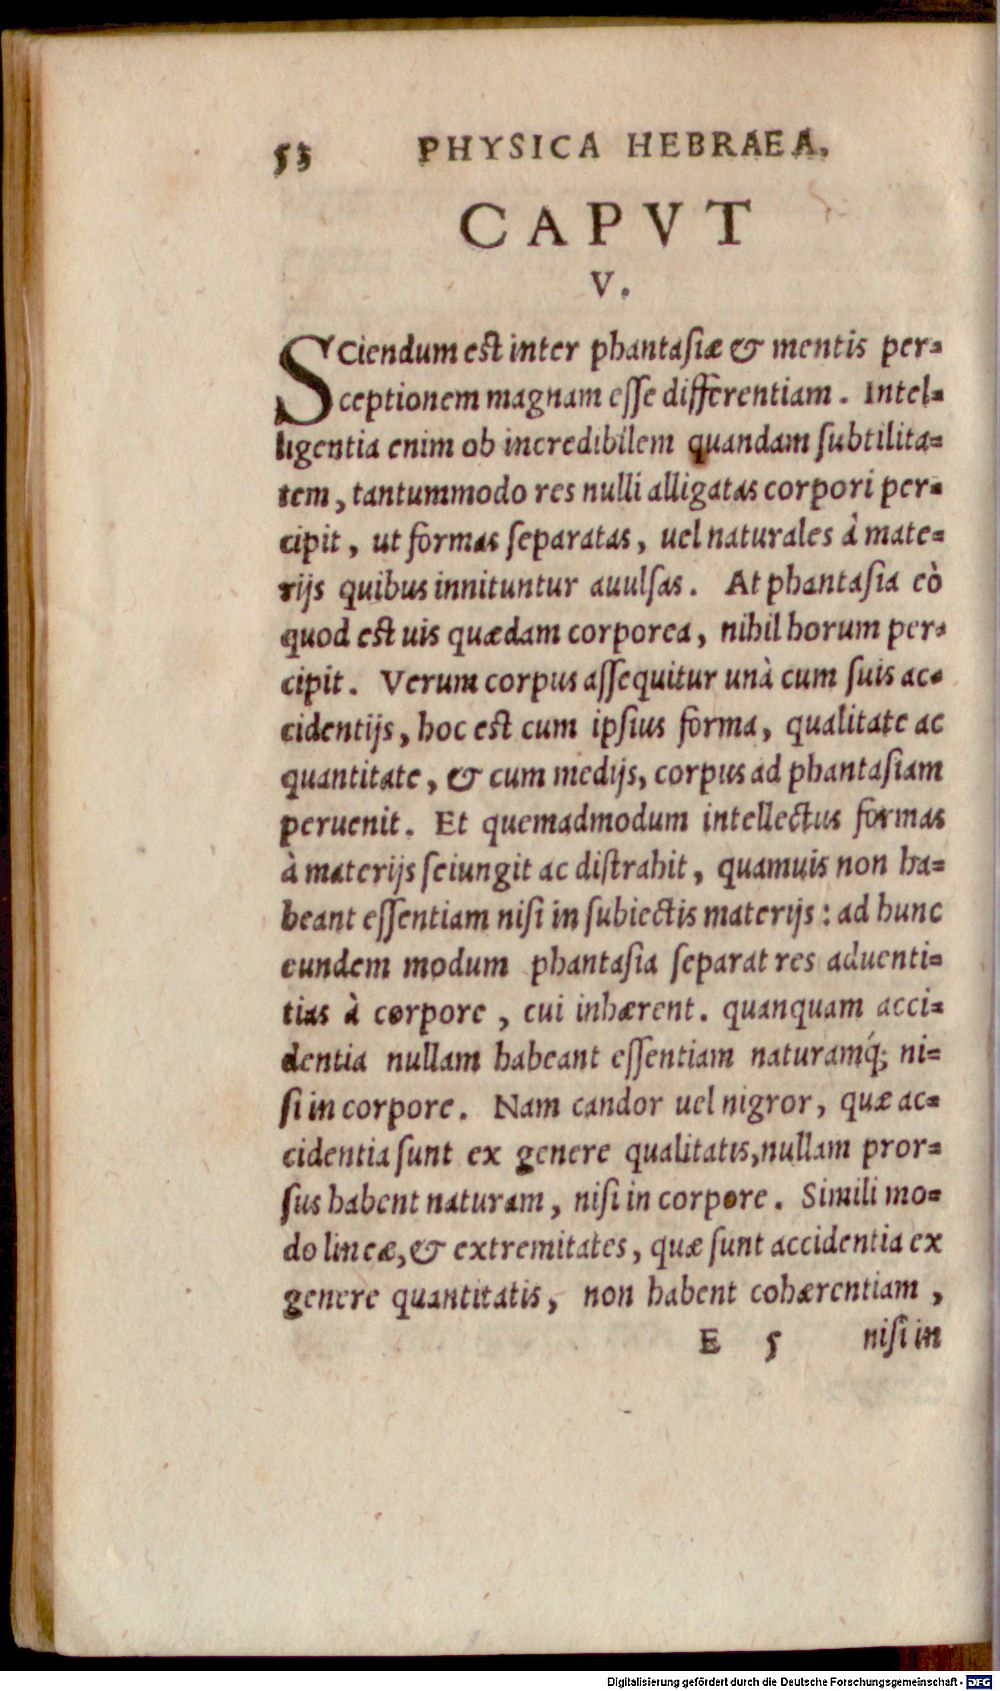 53 PHYSICA HEBRAEA.
CAPVT
V.
SCiendum est inter phantasiæ & mentis per-
ceptionem magnam esse differentiam. Intel-
ligentia enim ob incredibilem quandam subtilita-
tem, tantummodo res nulli alligatas corpori per-
cipit, ut formas separatas, uel naturales à mate-
rijs quibus innituntur auulsas. At phantasia eò
quod est uis quædam corporea, nihil horum per-
cipit. Verum corpus assequitur unà cum suis ac-
cidentijs, hoc est cum ipsius forma, qualitate ac
quantitate, & cum medijs, corpus ad phantasiam
peruenit. Et quemadmodum intellectus formas
à materijs seiungit ac distrahit, quamuis non ha-
beant essentiam nisi in subiectis materijs: ad hunc
eundem modum phantasia separat res aduenti-
tias à corpore, cui inhærent. quanquam acci-
dentia nullam habeant essentiam naturamq́; ni-
si in corpore. Nam candor uel nigror, quæ ac-
cidentia sunt ex genere qualitatis, nullam pror-
sus habent naturam, nisi in corpore. Simili mo-
do lineæ, & extremitates, quæ sunt accidentia ex
genere quantitatis, non habent cohærentiam,
E 5 nisi in
Digitalisierung gefördert durch die Deutsche Forschungsgemeinschaft - DFG